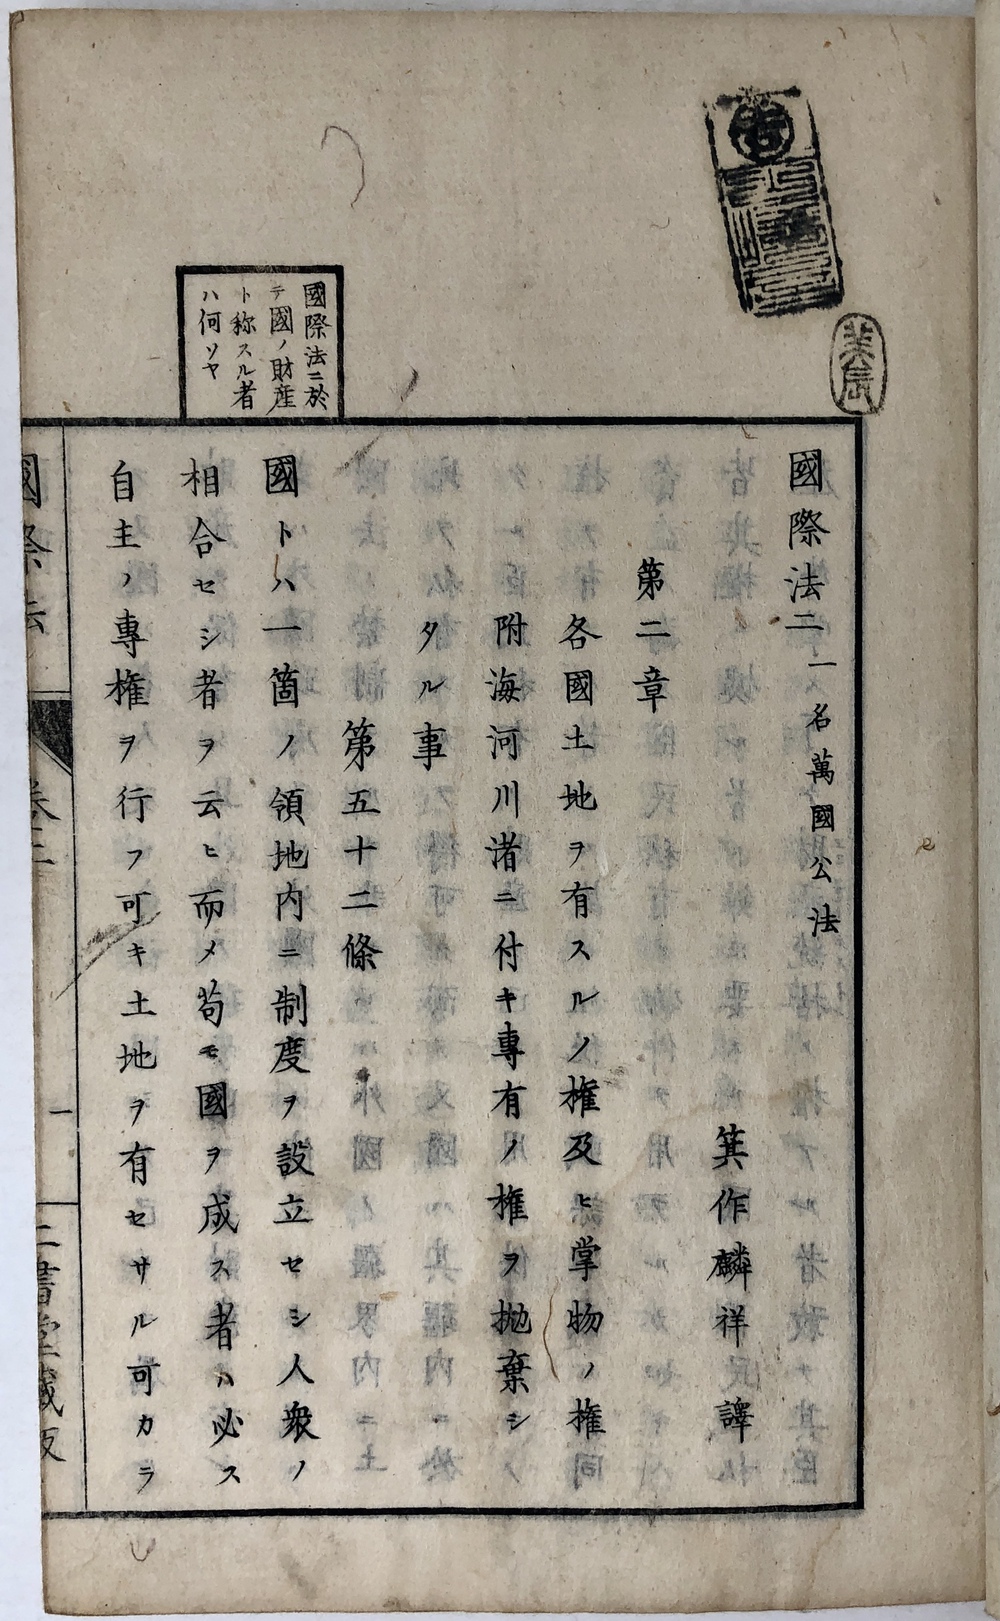 國際法二 一名萬國公法
箕作麟祥譯
第二章
各國土地ヲ有スルノ権及ヒ掌物ノ権同
附海河川渚ニ付キ專有ノ権ヲ抛棄シ
タル事
第五十二條
國トハ一箇ノ領地内ニ制度ヲ設立セシ人衆ノ
相合セシ者ヲ云ヒ而メ苟モ國ヲ成ス者ハ必ス
自主ノ專権ヲ行フ可キ土地ヲ有セサル可カラ
國際法ニ於
テ國ノ財産
ト称スル者
ハ何ソヤ
國際法
卷二
一
二書堂藏版